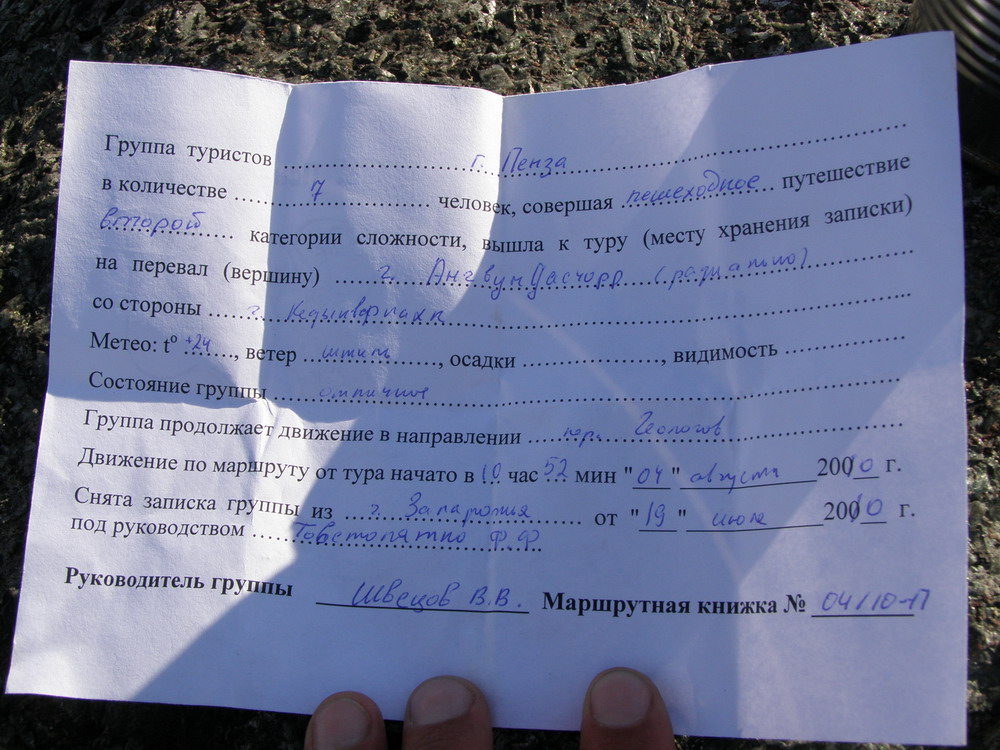 Группа туристов ..... г. Пенза .....
в количестве ..... 7 ..... человек, совершая пешеходное путешествие
второй ..... категории сложности, вышла к туру (месту хранения записки)
на перевал (вершину) ..... г. (радиально)
со стороны ..... г. .....
Метео: t° +24 ....., ветер ..... штиль ....., осадки ....., видимость .....
Состояние группы ..... отличное .....
Группа продолжает движение в направлении ..... пер. Геологов .....
Движение по маршруту от тура начато в 10 час 52 мин "04" августа 2010 г.
Снята записка группы из ..... г. Запарожья ..... от "19" июля 2010 г.
под руководством ..... Ф.Ф.
Руководитель группы Швецов В.В. Маршрутная книжка № 04/10-П